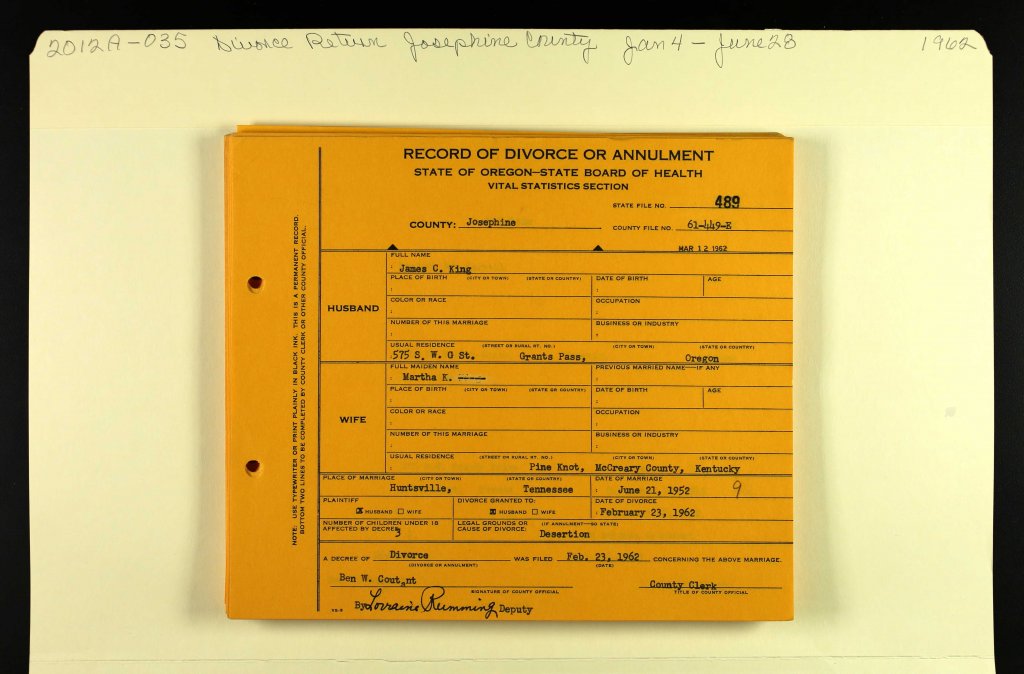 2012A-035 Divorce Return Josephine County Jan 4 - June 28 1962
RECORD OF DIVORCE OR ANNULMENT
STATE OF OREGON—STATE BOARD OF HEALTH
VITAL STATISTICS SECTION
STATE FILE NO. 489
COUNTY: Josephine COUNTY FILE NO. 61-449-E
MAR 12 1962
NOTE: USE TYPEWRITER OR PRINT PLAINLY IN BLACK INK. THIS IS A PERMANENT RECORD.
BOTTOM TWO LINES TO BE COMPLETED BY COUNTY CLERK OR OTHER COUNTY OFFICIAL.
HUSBAND
FULL NAME
: James C. King
PLACE OF BIRTH (CITY OR TOWN) (STATE OR COUNTRY) DATE OF BIRTH AGE
: :
COLOR OR RACE OCCUPATION
: :
NUMBER OF THIS MARRIAGE BUSINESS OR INDUSTRY
: :
USUAL RESIDENCE (STREET OR RURAL RT. NO.) (CITY OR TOWN) (STATE OR COUNTRY)
:575 S. W. G St. Grants Pass, Oregon
WIFE
FULL MAIDEN NAME PREVIOUS MARRIED NAME—IF ANY
: Martha K. :
PLACE OF BIRTH (CITY OR TOWN) (STATE OR COUNTRY) DATE OF BIRTH AGE
: :
COLOR OR RACE OCCUPATION
: :
NUMBER OF THIS MARRIAGE BUSINESS OR INDUSTRY
: :
USUAL RESIDENCE (STREET OR RURAL RT. NO.) (CITY OR TOWN) (STATE OR COUNTRY)
: Pine Knot, McCreary County, Kentucky
PLACE OF MARRIAGE (CITY OR TOWN) (STATE OR COUNTRY) DATE OF MARRIAGE
Huntsville, Tennessee : June 21, 1952 9
PLAINTIFF DIVORCE GRANTED TO: DATE OF DIVORCE
☒ HUSBAND ☐ WIFE ☒ HUSBAND ☐ WIFE :February 23, 1962
NUMBER OF CHILDREN UNDER 18 LEGAL GROUNDS OR (IF ANNULMENT—SO STATE)
AFFECTED BY DECREE 3 CAUSE OF DIVORCE: Desertion
A DECREE OF Divorce WAS FILED Feb. 23, 1962 CONCERNING THE ABOVE MARRIAGE.
(DIVORCE OR ANNULMENT) (DATE)
Ben W. Coutant County Clerk
SIGNATURE OF COUNTY OFFICIAL TITLE OF COUNTY OFFICIAL
VS-9 By Lorraine Rumming Deputy